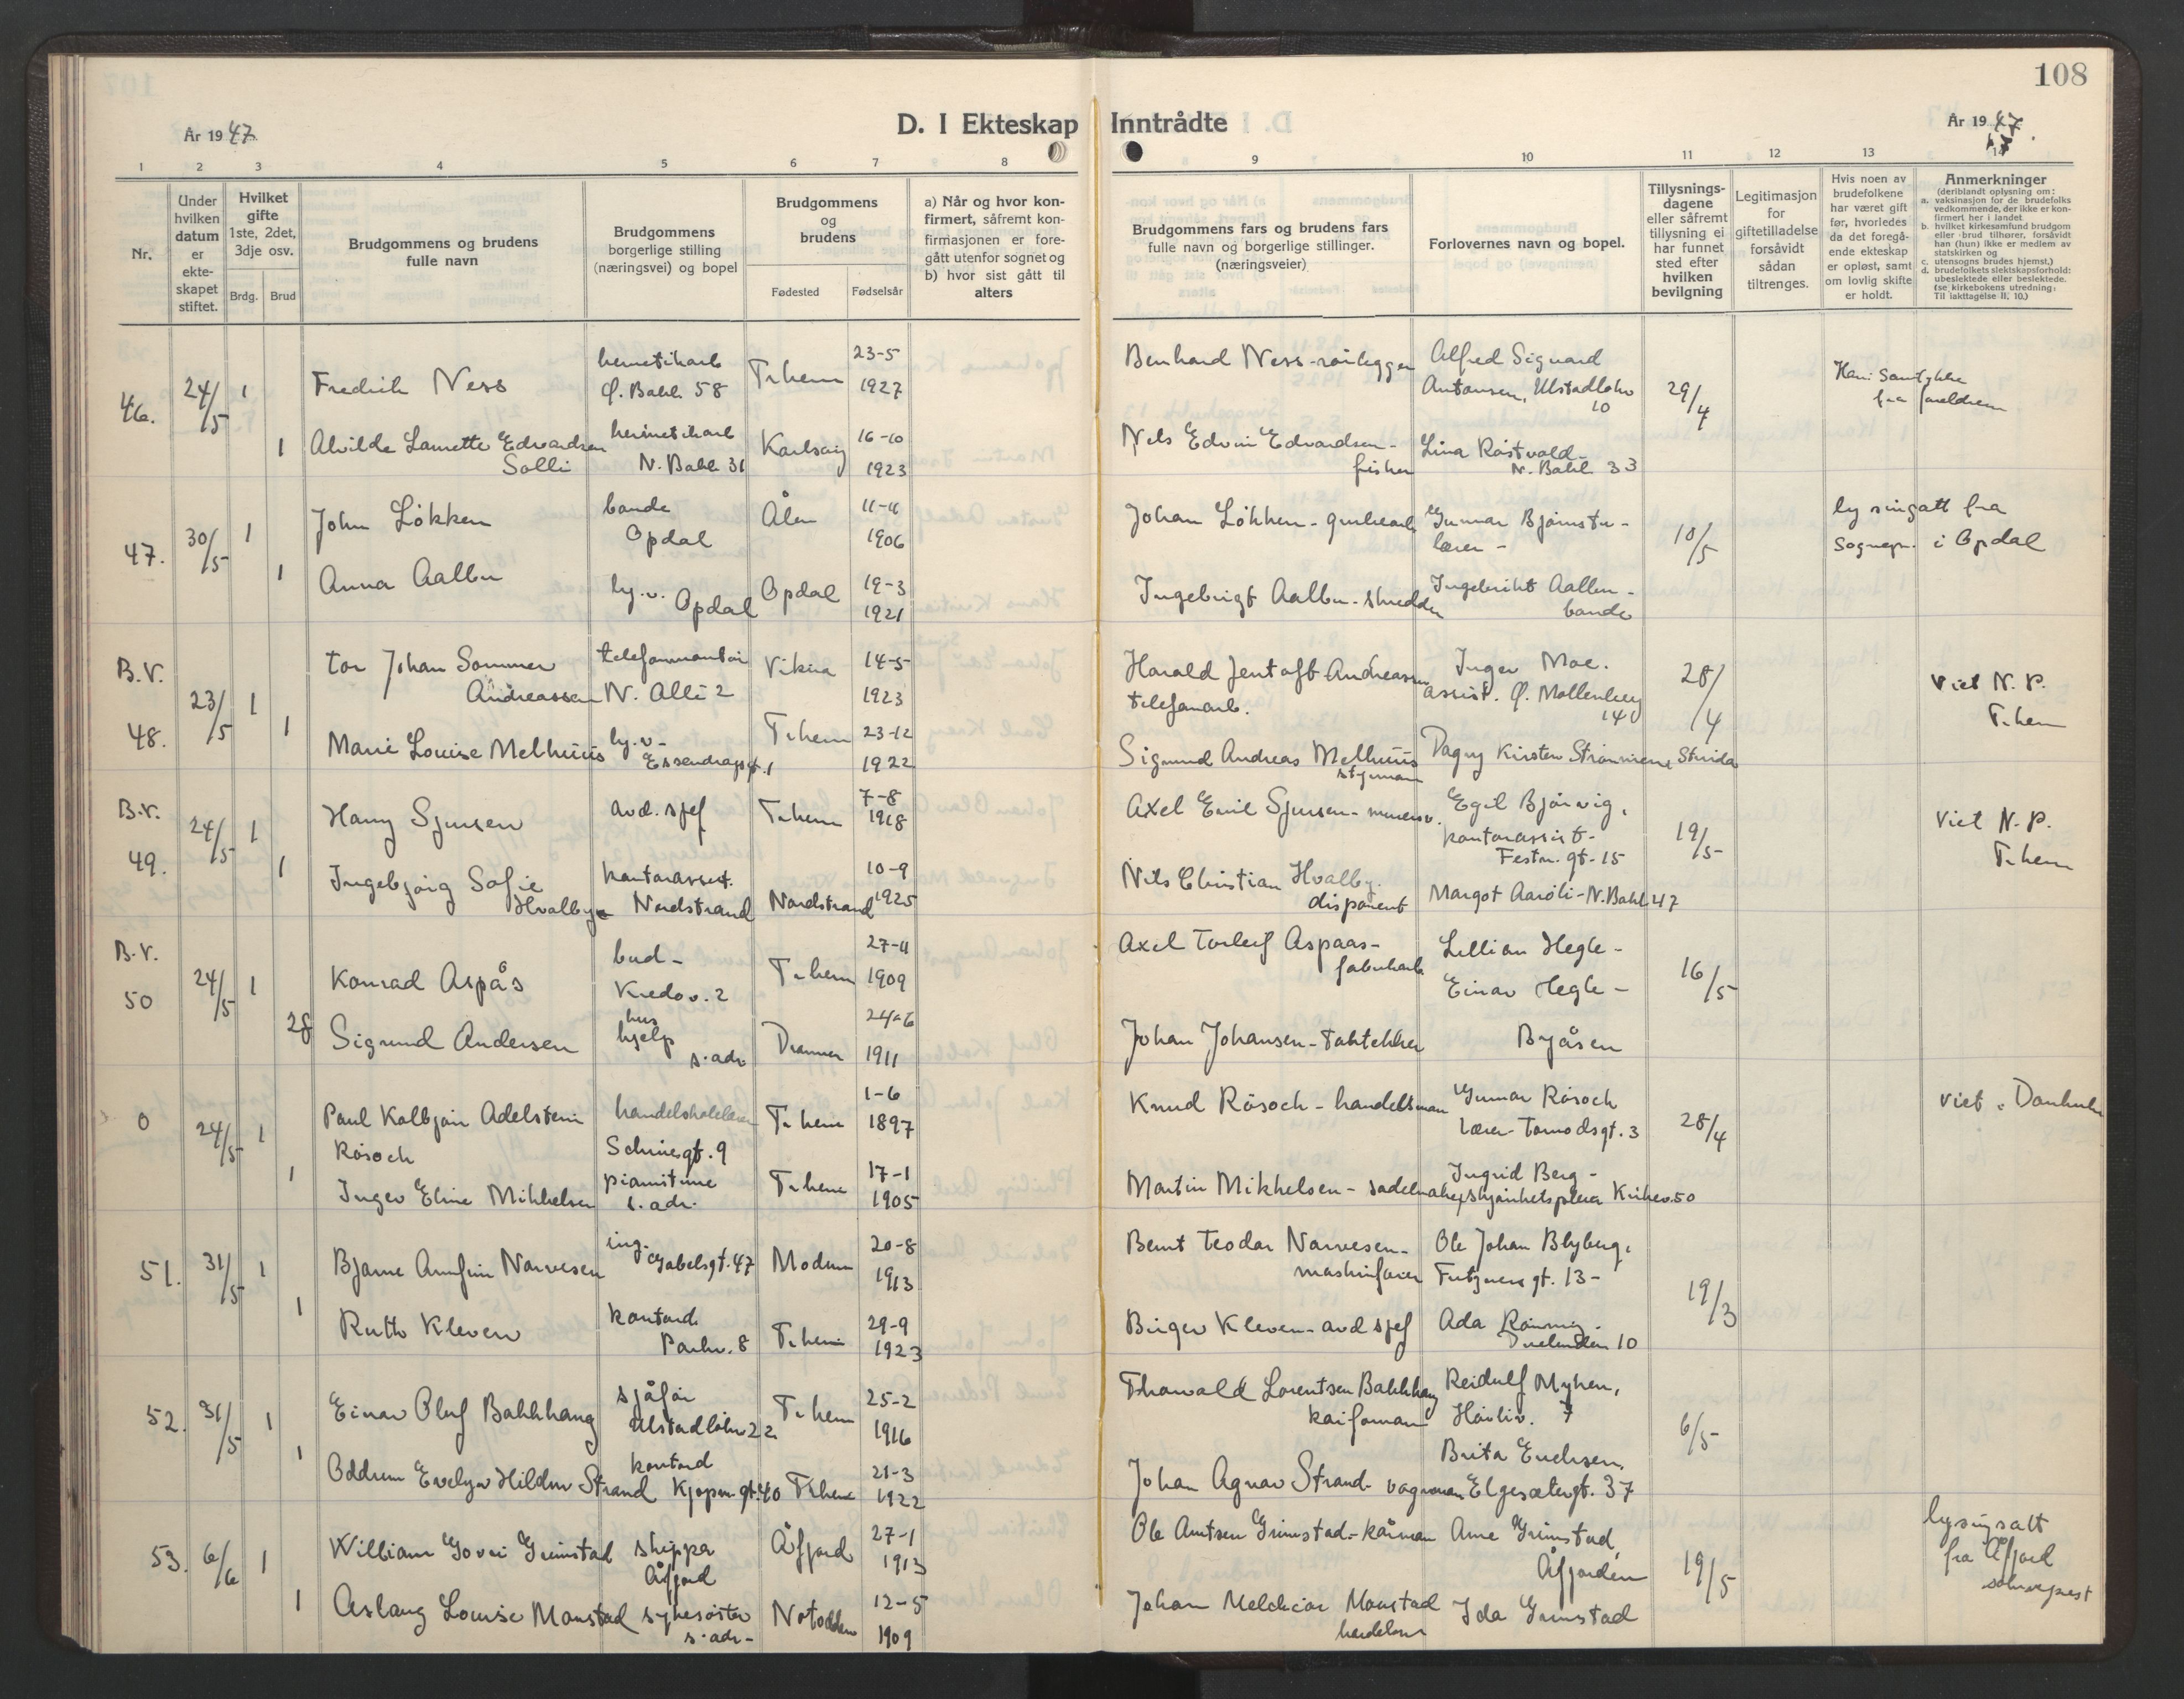 108
År 1947
D. I Ekteskap Inntrådte
År 1947
1 2 3 4 5 6 7 8 9 10 11 12 13 14
Nr.
Under hvilken datum er ekte-skapet stiftet.
Hvilket gifte 1ste, 2det, 3dje osv.
Brdg. Brud
Brudgommens og brudens fulle navn
Brudgommens borgerlige stilling (næringsvei) og bopel
Brudgommens og brudens
Fødested Fødselsår
a) Når og hvor kon-firmert, såfremt kon-firmasjonen er fore-gått utenfor sognet og
b) hvor sist gått til alters
Brudgommens fars og brudens fars fulle navn og borgerlige stillinger. (næringsveier)
Forlovernes navn og bopel.
Tillysnings-dagene eller såfremt tillysning ei har funnet sted efter hvilken bevilgning
Legitimasjon for giftetilladelse forsåvidt sådan tiltrenges.
Hvis noen av brudefolkene har været gift før, hvorledes da det foregå-ende ekteskap er opløst, samt om lovlig skifte er holdt.
Anmerkninger
(deriblandt oplysning om:
a. vaksinasjon for de brudefolks vedkommende, der ikke er kon-firmert her i landet
b. hvilket kirkesamfund brudgom eller brud tilhører, forsåvidt han (hun) ikke er medlem av statskirken og
c. utensogns brudes hjemst.)
d. brudefolkets slektskapsforhold: ubeslektede eller beslektede. (se kirkebokens utredning: Til iakttagelse II, 10.)
46. 24/5 1 Fredrik Ness
hermetikarb Ø. Bakl. 58 T.hem 23-5 1927
Bernhard Ness - rørlegger
Alfred Sigvard Antonsen, Ulstadløkv 10
29/4
Har samtykke fra foreldrene
1 Alvilde Laurette Edvardsen Solli
hermetikarb N. Bakl. 31 Karlsøy 16-10 1923
Nils Edvin Edvardsen - fisker
Lina Røstvold - N. Bakl. 33
47. 30/5 1 John Løkken
bonde Opdal Ålen 11-11 1906
Johan Løkken - grubearb
Gunnar Bjørnstu - lærer -
10/5
lysingatt fra sognepr. i Opdal
1 Anna Aalbu
hj.v. Opdal Opdal 19-3 1921
Ingebrigt Aalbu - skredder
Ingebrikt Aalbu - bonde
B.V. 48. 23/5 1 Tor Johan Sommer Andreassen
telefonmontør N. Allé 2 Vikna 14-5 1923
Harald Jentoft Andreassen telefonarb.
Inger Moe. assist. Ø. Møllenberg 14
28/4
Viet N. P. T.hem
1 Marie Louise Melhuus
hj.v. - T.hem 23-12 1922
Sigmund Andreas Melhuus styrmann
Dagny Kirsten Strømmen, Strinda
B.V. 49. 24/5 1 Harry Sjursen
avd. sjef T.hem 7-8 1918
Axel Emil Sjursen - murersv.
Egil Bjørvig, kontorassist - Festn. gt. 15
19/5
Viet N. P. T.hem
1 Ingebjørg Sofie Hvalbye
kontorassist. Nordstrand Nordstrand 10-9 1925
Nils Christian Hvalby. disponent
Margot Aarøli - N. Bakl 47
B.V. 50 24/5 1 Konrad Aspås
bud - Kredov. 2 T.hem 27-11 1909
Axel Torleif Aspaas - fabrikarb
Lillian Hegle - Einar Hegle -
16/5
2f Sigrund Andersen
hus hjelp s. adr Drammen 24-6 1911
Johan Johansen - taktekker
Byåsen
0 24/5 1 Paul Kolbjørn Adelsten Røsoch
Schiresgt. 9 T.hem 1-6 1897
Knud Røsoch - handelsman
Gunnar Røsoch lærer - Tormodsgt. 3
28/4
Viet i Domkirken
1 Inger Eline Mikkelsen
pianistinne s. adr. T.hem 17-1 1905
Martin Mikkelsen - sadelmaker
Ingrid Berg - skjønhetspleier Kirkev. 50
51. 31/5 1 Bjarne Arnfinn Narvesen
ing. Gabelsgt. 47 Modum 20-8 1913
Bernt Teodor Narvesen - maskinfører
Ole Johan Blyberg, gt. 13 -
19/3
1 Ruth Kleven
kontord. Parkv. 8 T.hem 29-9 1923
Birger Kleven - avd sjef
Ada Rønning. 10
52. 31/5 1 Einar Oluf Bakkhaug
sjåfør Ulstadløkv 22 T.hem 25-2 1916
Thorvald Lorentsen Bakkhaug kaiformann
Reidulf Myhren, Havliv. 7
6/5
1 Oddrun Evelyn Hildur Strand
kontord Kjøpm. gt. 40 T.hem 21-3 1922
Johan Agnar Strand - vognmann
Brita Erichsen, Elgesætergt. 37
53. 6/6 1 William Govri Grimstad
skipper Åfjord Åfjord 27-1 1913
Ole Arntsen Grimstad - kårmann
Arne Grimstad, Åfjorden
19/5
lysingsatt fra Åfjord sokneprest
1 Aslaug Louise Monstad
sykesøster s. adr - Notodden 12-5 1909
Johan Melchior Monstad handelsm
Ida Grimstad